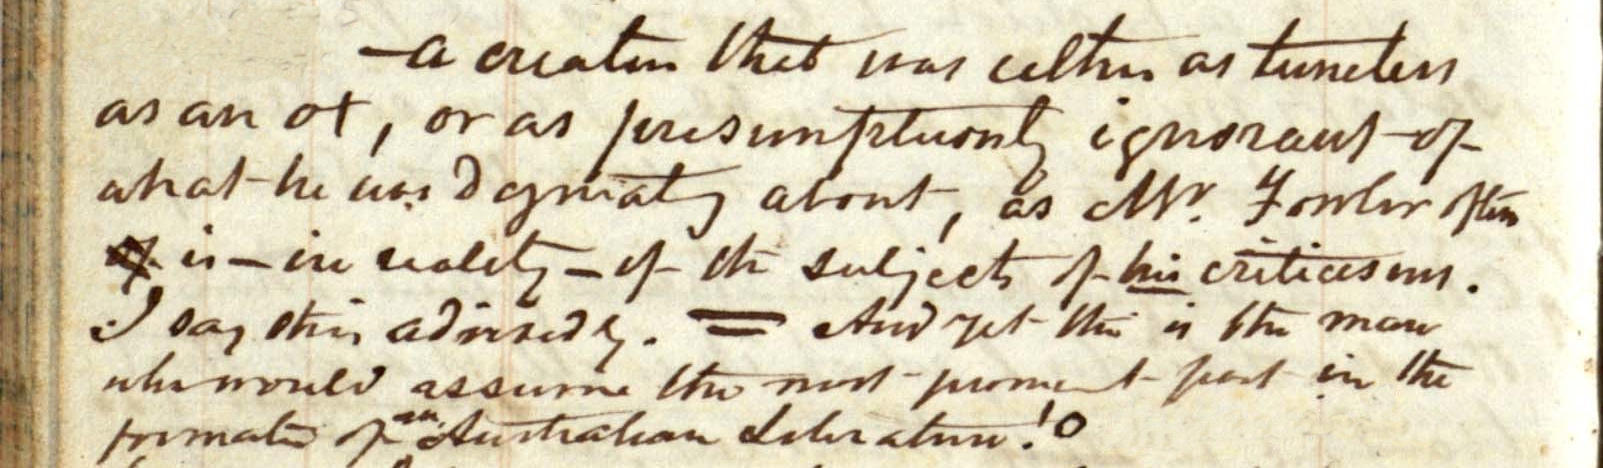 —a creature that was either as tuneless
as an ox, or as presumptuously ignorant of
what he was dogmatizing about, as Mr. Fowler often
is — in reality — of the subjects of his criticisms.
I say this advisedly. = And yet this is the man
who would assume the most prominent part in the
formation of an Australian Literature!